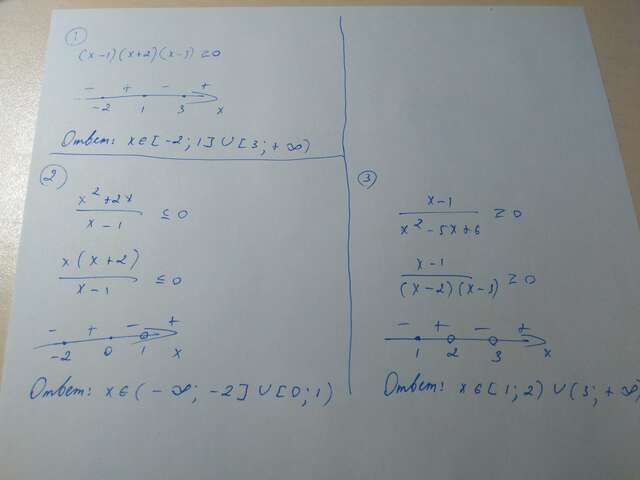 1
(x-1)(x+2)(x-3) ≥ 0
- + - +
-2 1 3 x
Ответ: x∈[-2; 1]∪[3; +∞)
2)
x²+2x / x-1 ≤ 0
x(x+2) / x-1 ≤ 0
- + - +
-2 0 1 x
Ответ: x∈(-∞; -2]∪[0; 1)
3
x-1 / x²-5x+6 ≥ 0
x-1 / (x-2)(x-3) ≥ 0
- + - +
1 2 3 x
Ответ: x∈[1; 2)∪(3; +∞)